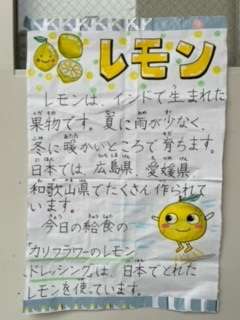 レモン
レモンは、インドで生まれた
果物です。夏に雨が少なく、
冬に暖かいところで育ちます。
日本では、広島県、愛媛県、
和歌山県でたくさん作られて
います。
今日の給食の
「カリフラワーのレモン
ドレッシング」は、日本でとれた
レモンを使っています。